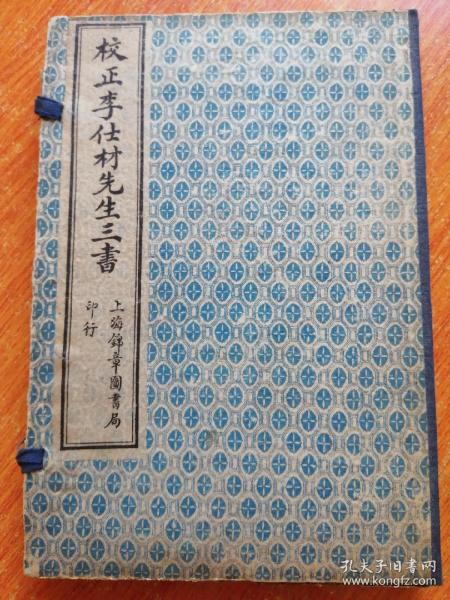 校正李仕材先生三書
上海錦章圖書局
印行
孔夫子旧书网
www.kongfz.com